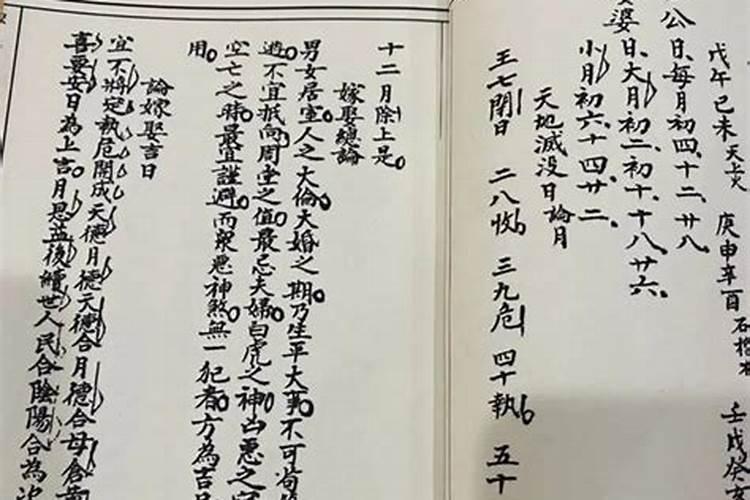 戊午己未天上火 庚申辛酉石榴木 壬戌癸
公日每月初四十二廿八
婆日大月初二初十十八廿六
小月初六十四廿二
天地滅没日論月
王七閉日 二八收 三九危 四十執 五十
十二月除上是
嫁娶總論
男女居室人之大倫大婚之期乃生平大事不可苟
避不宜抵向周堂之值最忌夫婦白虎之神凶悪之
空亡之時最宜謹避而衆悪神煞無一犯者方為吉
用
論嫁娶吉日
宜不將定執危開成天德月德天德合月德合母倉
喜要安日為上吉月恩益後續世人民合陰陽合為次